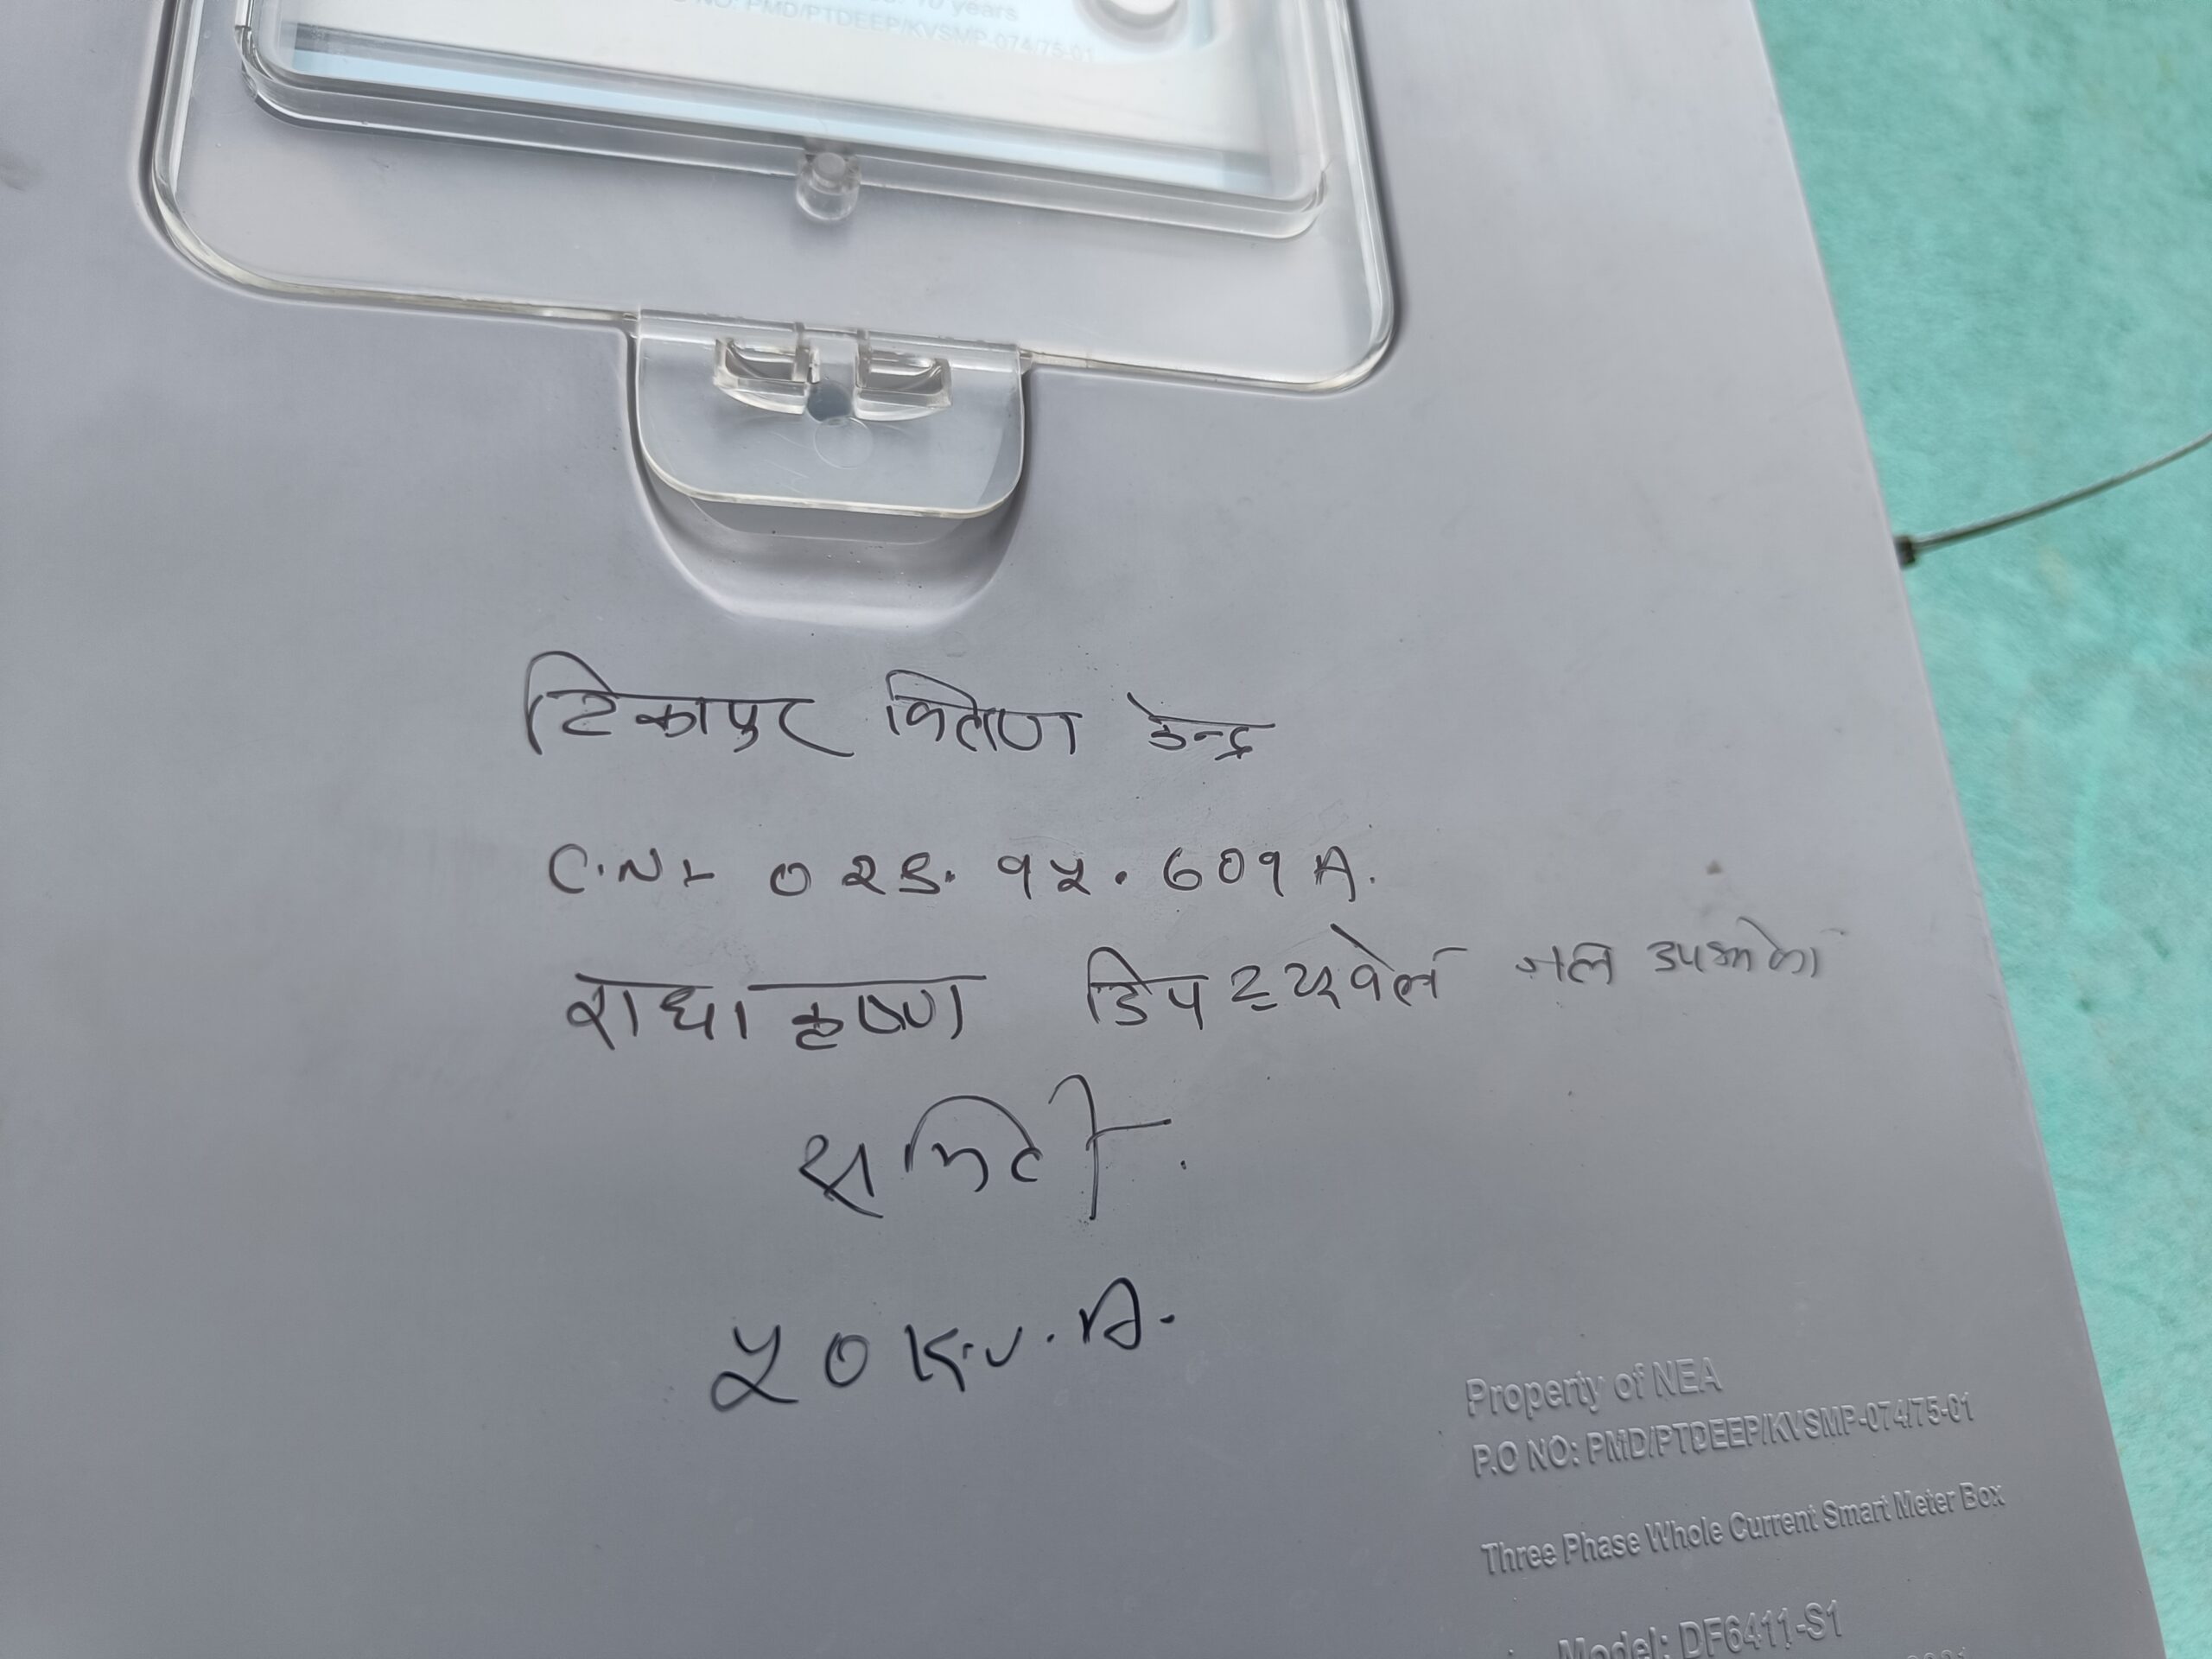 10 years
NO: PMD/PTDEEP/KVSMP-074/75-01
टिकापुर वितरण केन्द्र
C.N:- ०२९. १५. ६०१ A.
राधा कृष्ण डिप ट्युवेल जल उपभोक्ता
समिती.
५० K.V.A.
Property of NEA
P.O NO: PMD/PTDEEP/KVSMP-074/75-01
Three Phase Whole Current Smart Meter Box
Model: DF6411-S1